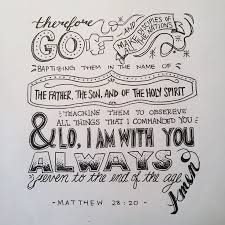 therefore
GO AND MAKE DISCIPLES OF ALL NATIONS
BAPTIZING THEM IN THE NAME OF
THE FATHER, THE SON, AND OF THE HOLY SPIRIT
TEACHING THEM TO OBSEREVE
ALL THINGS THAT I COMMANDED YOU
& LO, I AM WITH YOU
ALWAYS
even to the end of the age
Amen
- MATTHEW 28:20 -